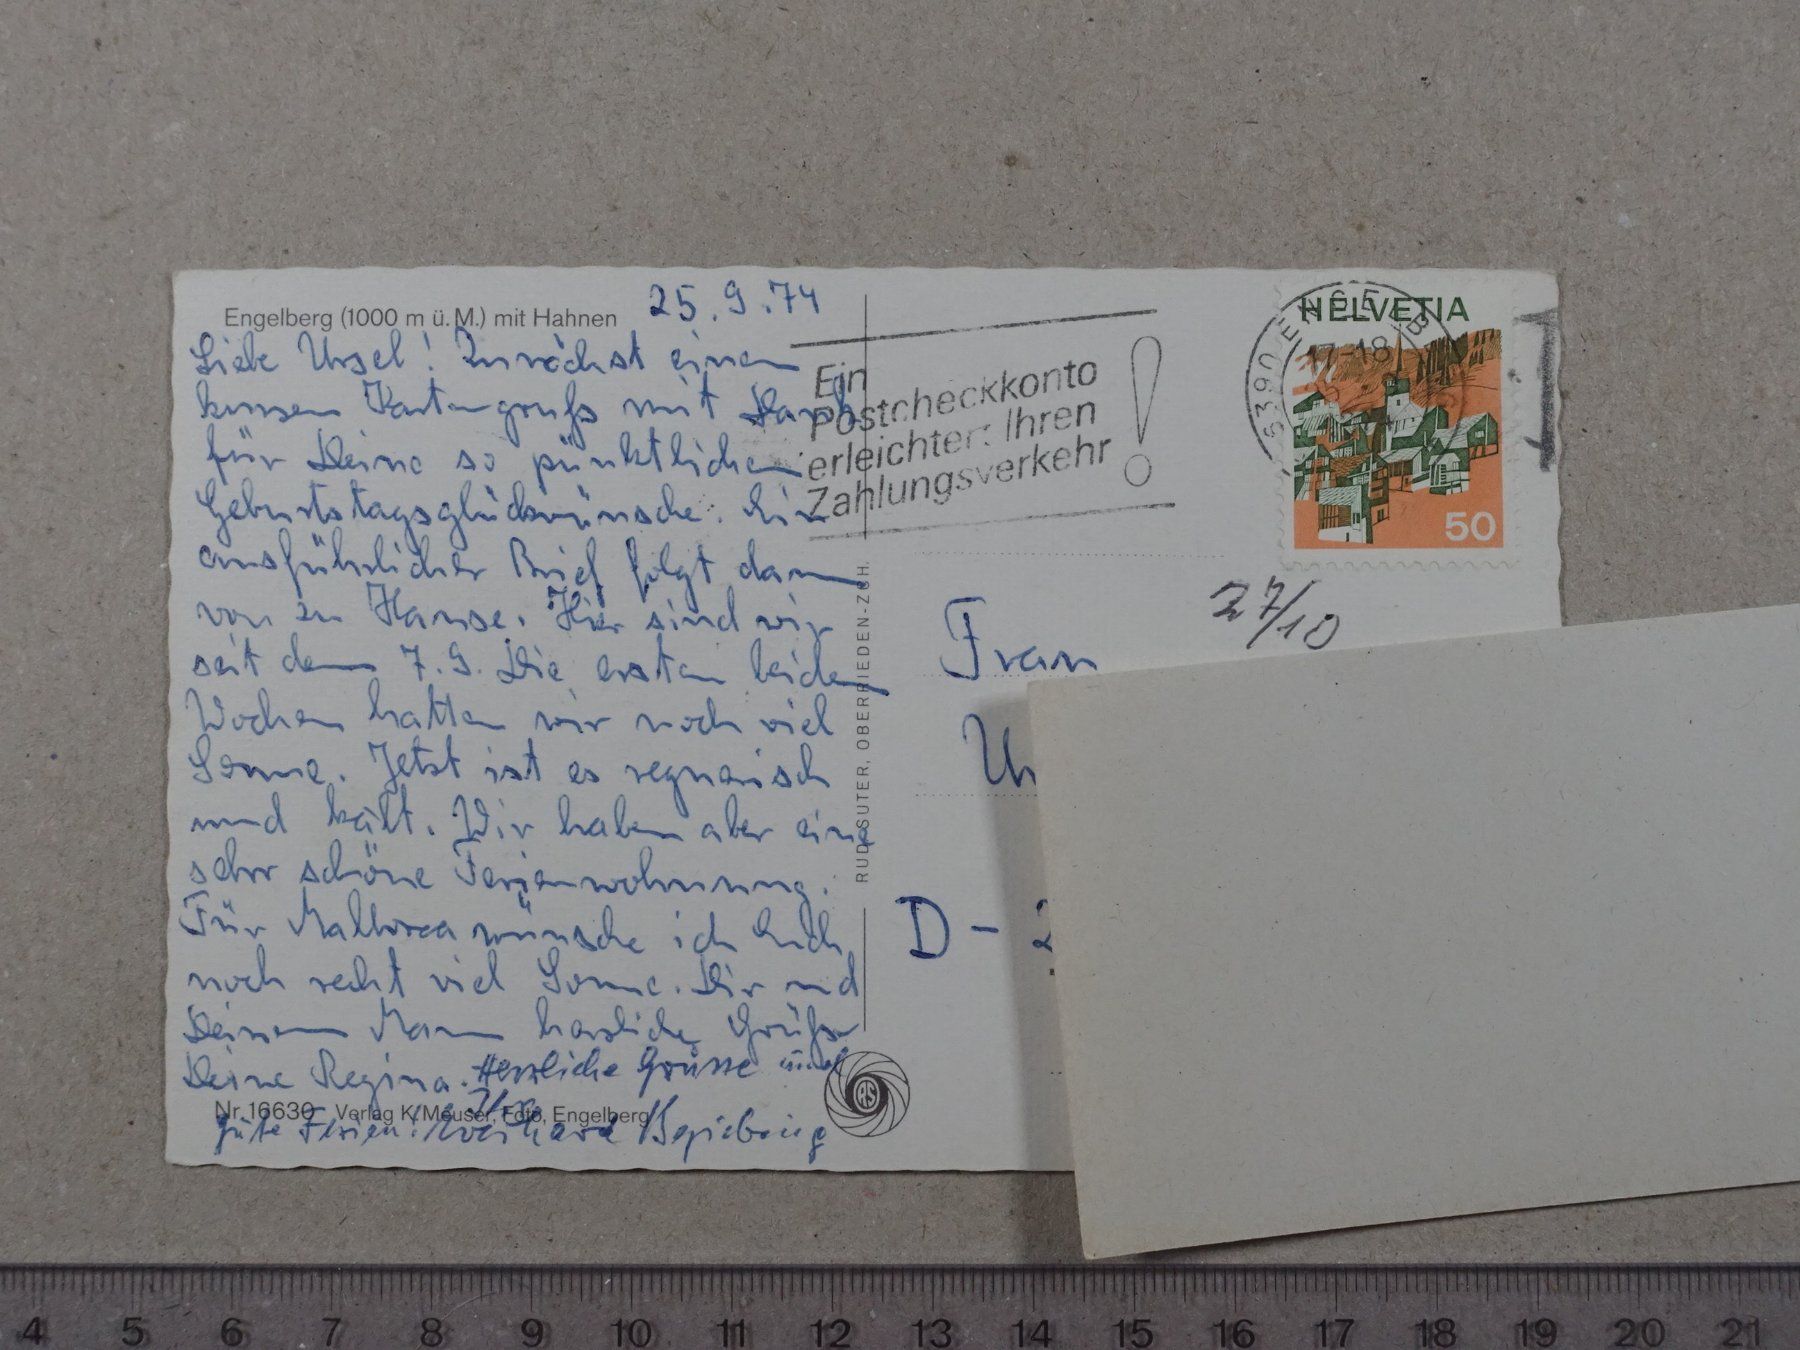 Engelberg (1000 m ü. M.) mit Hahnen
25.9.74
Liebe Ursel! Zunächst einen
kurzen Kartengruß mit Dank
für Deine so pünktlichen
Geburtstagsglückwünsche. Ein
ausführlicher Brief folgt dann
von zu Hause. Hier sind wir
seit dem 7.9. Die ersten beiden
Wochen hatten wir noch viel
Sonne. Jetzt ist es regnerisch
und kalt. Wir haben aber eine
sehr schöne Ferienwohnung.
Für Mallorca wünsche ich Euch
noch recht viel Sonne. Dir und
Deinem Mann herzliche Grüße
Deine Regina. Herzliche Grüsse und
gute Ferien!
Nr. 16630 Verlag K. Meuser, Foto, Engelberg
RUD. SUTER, OBERRIEDEN-ZCH.
RS
Ein
Postcheckkonto
erleichtert Ihren
Zahlungsverkehr!
HELVETIA
50
6390 ENGELBERG
17-18
27/10
Frau
D-2
4 5 6 7 8 9 10 11 12 13 14 15 16 17 18 19 20 21